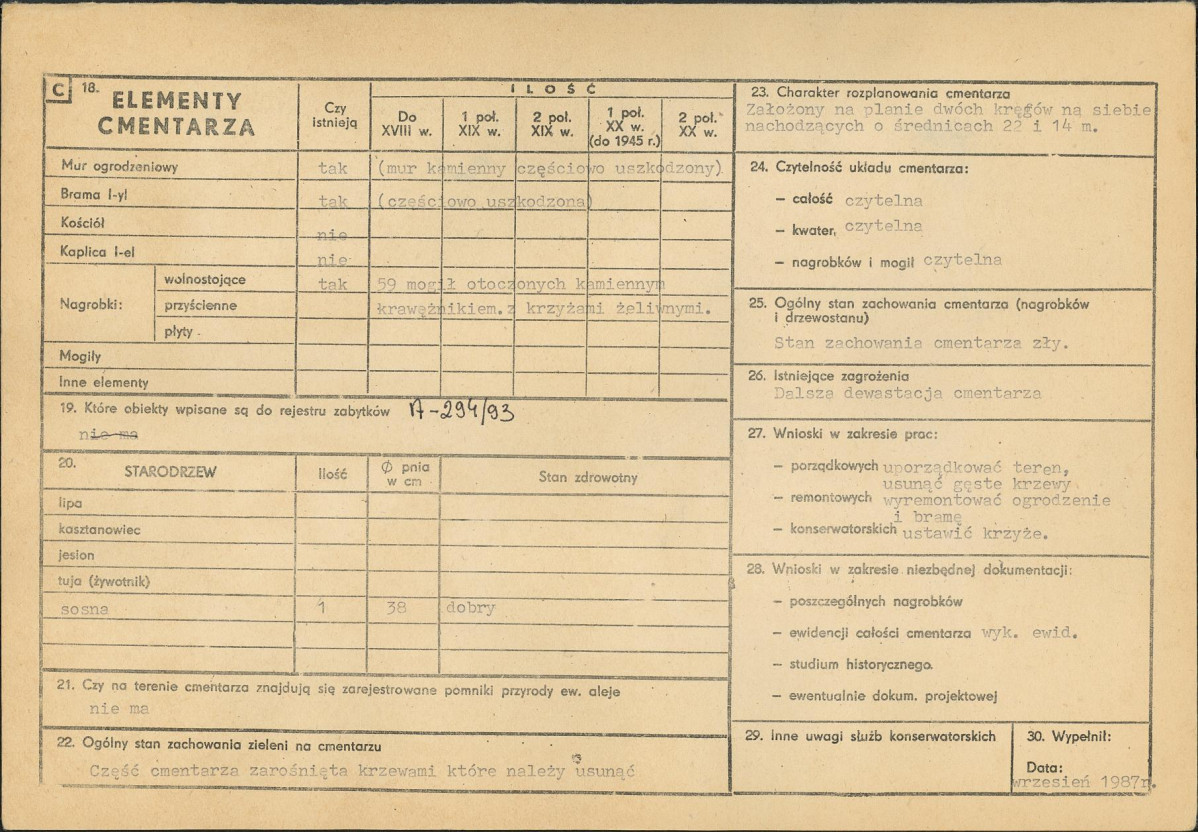 C 18. ELEMENTY CMENTARZA
Czy istnieją
ILOŚĆ
Do XVIII w.
1 poł. XIX w.
2 poł. XIX w.
1 poł. XX w. (do 1945 r.)
2 poł. XX w.
Mur ogrodzeniowy tak (mur kamienny częściowo uszkodzony)
Brama i-yl tak (częściowo uszkodzona)
Kościół nie
Kaplica i-el nie
Nagrobki:
wolnostojące tak 59 mogił otoczonych kamiennym
przyścienne krawężnikiem.z krzyżami żeliwnymi.
płyty
Mogiły
Inne elementy
19. Które obiekty wpisane są do rejestru zabytków A-294/93
nie ma
20. STARODRZEW
Ilość
Ø pnia w cm
Stan zdrowotny
lipa
kasztanowiec
jesion
tuja (żywotnik)
sosna 1 38 dobry
21. Czy na terenie cmentarza znajdują się zarejestrowane pomniki przyrody ew. aleje
nie ma
22. Ogólny stan zachowania zieleni na cmentarzu
Część cmentarza zarośnięta krzewami które należy usunąć
23. Charakter rozplanowania cmentarza
Założony na planie dwóch kręgów na siebie
nachodzących o średnicach 22 i 14 m.
24. Czytelność układu cmentarza:
— całość czytelna
— kwater, czytelna
— nagrobków i mogił czytelna
25. Ogólny stan zachowania cmentarza (nagrobków
i drzewostanu)
Stan zachowania cmentarza zły.
26. Istniejące zagrożenia
Dalsza dewastacja cmentarza
27. Wnioski w zakresie prac:
— porządkowych uporządkować teren,
usunąć gęste krzewy
— remontowych wyremontować ogrodzenie
i bramę
— konserwatorskich ustawić krzyże.
28. Wnioski w zakresie niezbędnej dokumentacji:
— poszczególnych nagrobków
— ewidencji całości cmentarza wyk. ewid.
— studium historycznego.
— ewentualnie dokum. projektowej
29. Inne uwagi służb konserwatorskich
30. Wypełnił:
Data:
wrzesień 1987r.